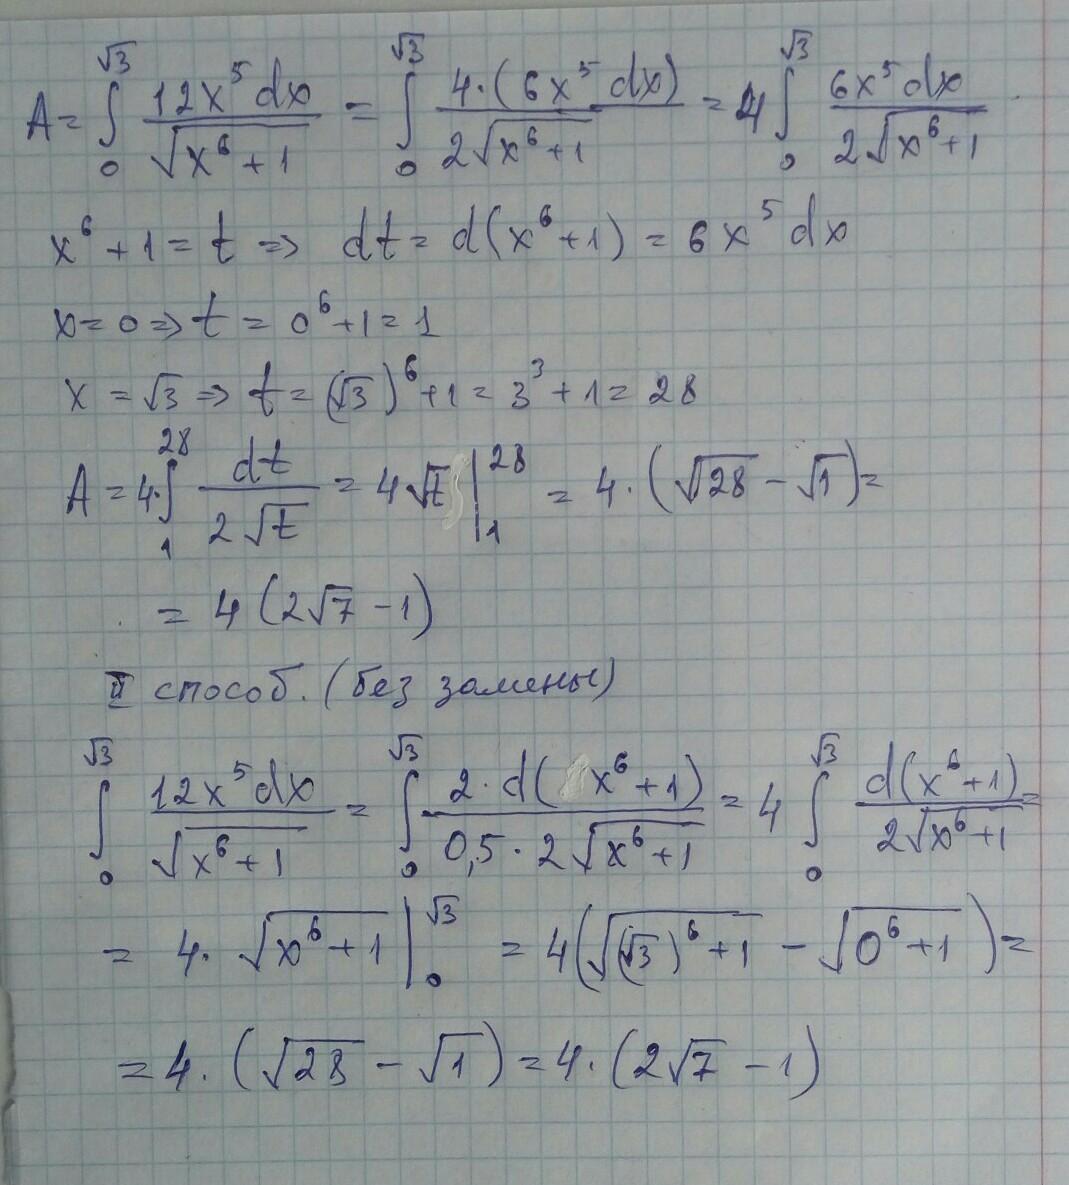 A = ∫₀^√3 12x⁵dx / √(x⁶+1) = ∫₀^√3 4·(6x⁵dx) / 2√(x⁶+1) = 4∫₀^√3 6x⁵dx / 2√(x⁶+1)
x⁶+1 = t ⇒ dt = d(x⁶+1) = 6x⁵dx
x=0 ⇒ t = 0⁶+1 = 1
x = √3 ⇒ t = (√3)⁶+1 = 3³+1 = 28
A = 4·∫₁²⁸ dt / 2√t = 4√t |₁²⁸ = 4·(√28 − √1) =
= 4(2√7 − 1)
II способ. (без замены)
∫₀^√3 12x⁵dx / √(x⁶+1) = ∫₀^√3 2·d(x⁶+1) / 0,5·2√(x⁶+1) = 4∫₀^√3 d(x⁶+1) / 2√(x⁶+1) =
= 4·√(x⁶+1) |₀^√3 = 4(√((√3)⁶+1) − √(0⁶+1)) =
= 4·(√28 − √1) = 4·(2√7 − 1)